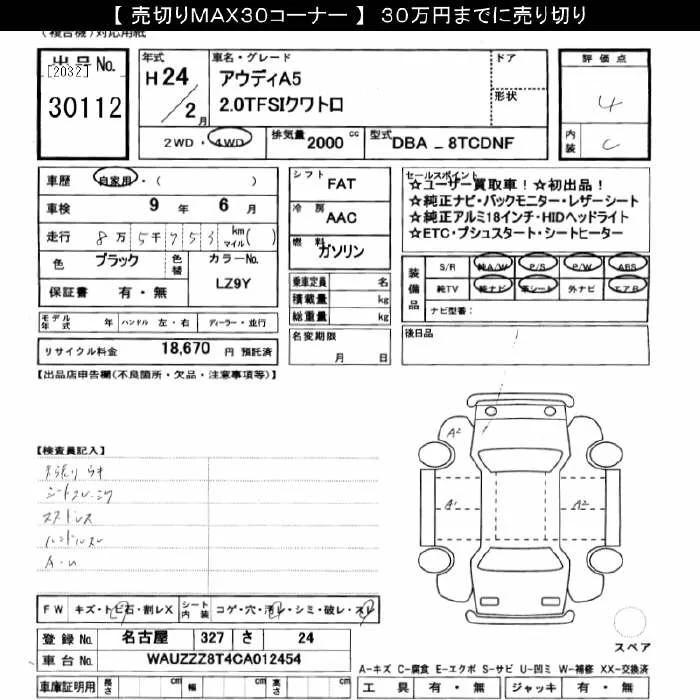 【 売切りMAX30コーナー 】 30万円までに売り切り
(複合機)対応用紙
出品No.
[2032]
30112
年式
H24
/2月
車名・グレード
アウディA5
2.0TFSIクワトロ
ドア
形状
2WD・4WD
排気量 2000 cc
型式 DBA _ 8TCDNF
評価点
4
内装
C
車歴 自家用・( )
車検 9 年 6 月
走行 8万5千753 km マイル( )
色 ブラック
色替
カラーNo.
LZ9Y
保証書 有・無
シフト FAT
冷房 AAC
燃料 ガソリン
乗車定員 名
積載量 kg
総重量 kg
名変期限
月 日
セールスポイント
☆ユーザー買取車！☆初出品！
☆純正ナビ・バックモニター・レザーシート
☆純正アルミ18インチ・HIDヘッドライト
☆ETC・プシュスタート・シートヒーター
装備品
S/R 純A/W P/S P/W ABS
純TV 純ナビ 革シート 外ナビ エアB
ナビ型番：
モデル年式 年 ハンドル 左・右 ディーラー・並行
リサイクル料金 18,670 円 預託済
後日品
【出品店申告欄(不良箇所・欠品・注意事項等)】
【検査員記入】
A2
A1
A2
FW キズ・トビ石・割レX
シート内装 コゲ・穴・汚レ・シミ・破レ・スレ
登録No. 名古屋 327 さ 24
車台No. WAUZZZ8T4CA012454
車庫証明用 長さ cm 幅 cm 高さ cm
スペア
A-キズ C-腐食 E-エクボ S-サビ U-凹ミ W-補修 XX-交換済
工具 有・無 ジャッキ 有・無